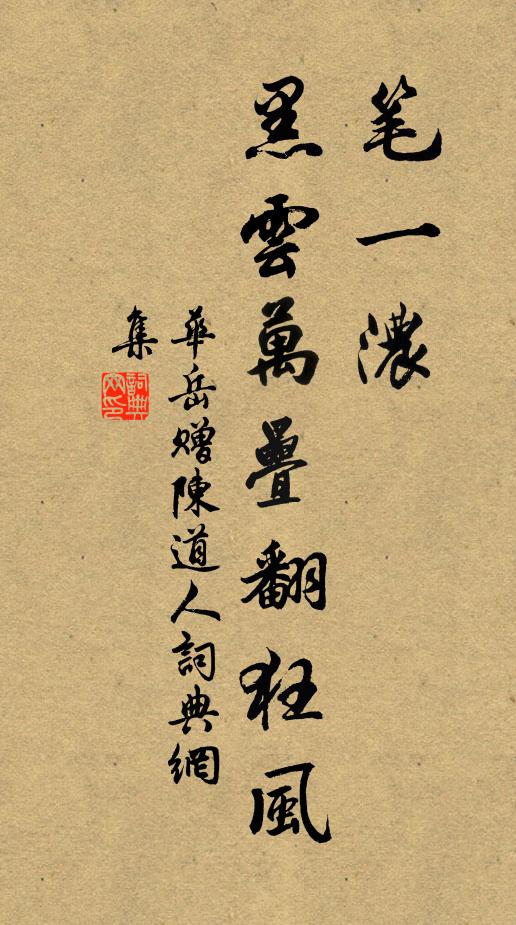 笔一濃
黑雲萬疊翻狂風
華岳贈陳道人詞典網
集
詞典
网印